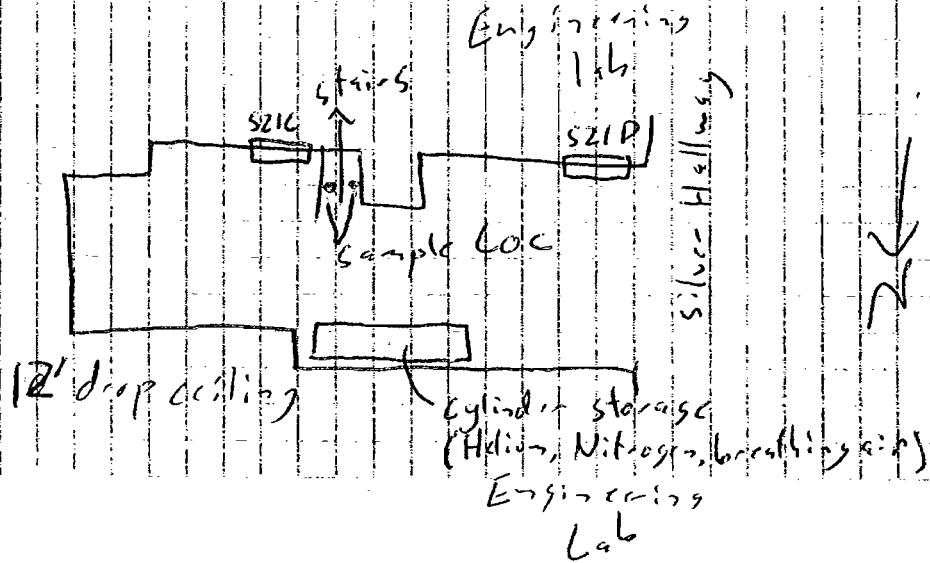 Engineering
Lab
stairs
521C
521D
Silver Hallway
Sample Loc
N
12' drop ceiling
Cylinder storage
(Helium, Nitrogen, breathing air)
Engineering
Lab